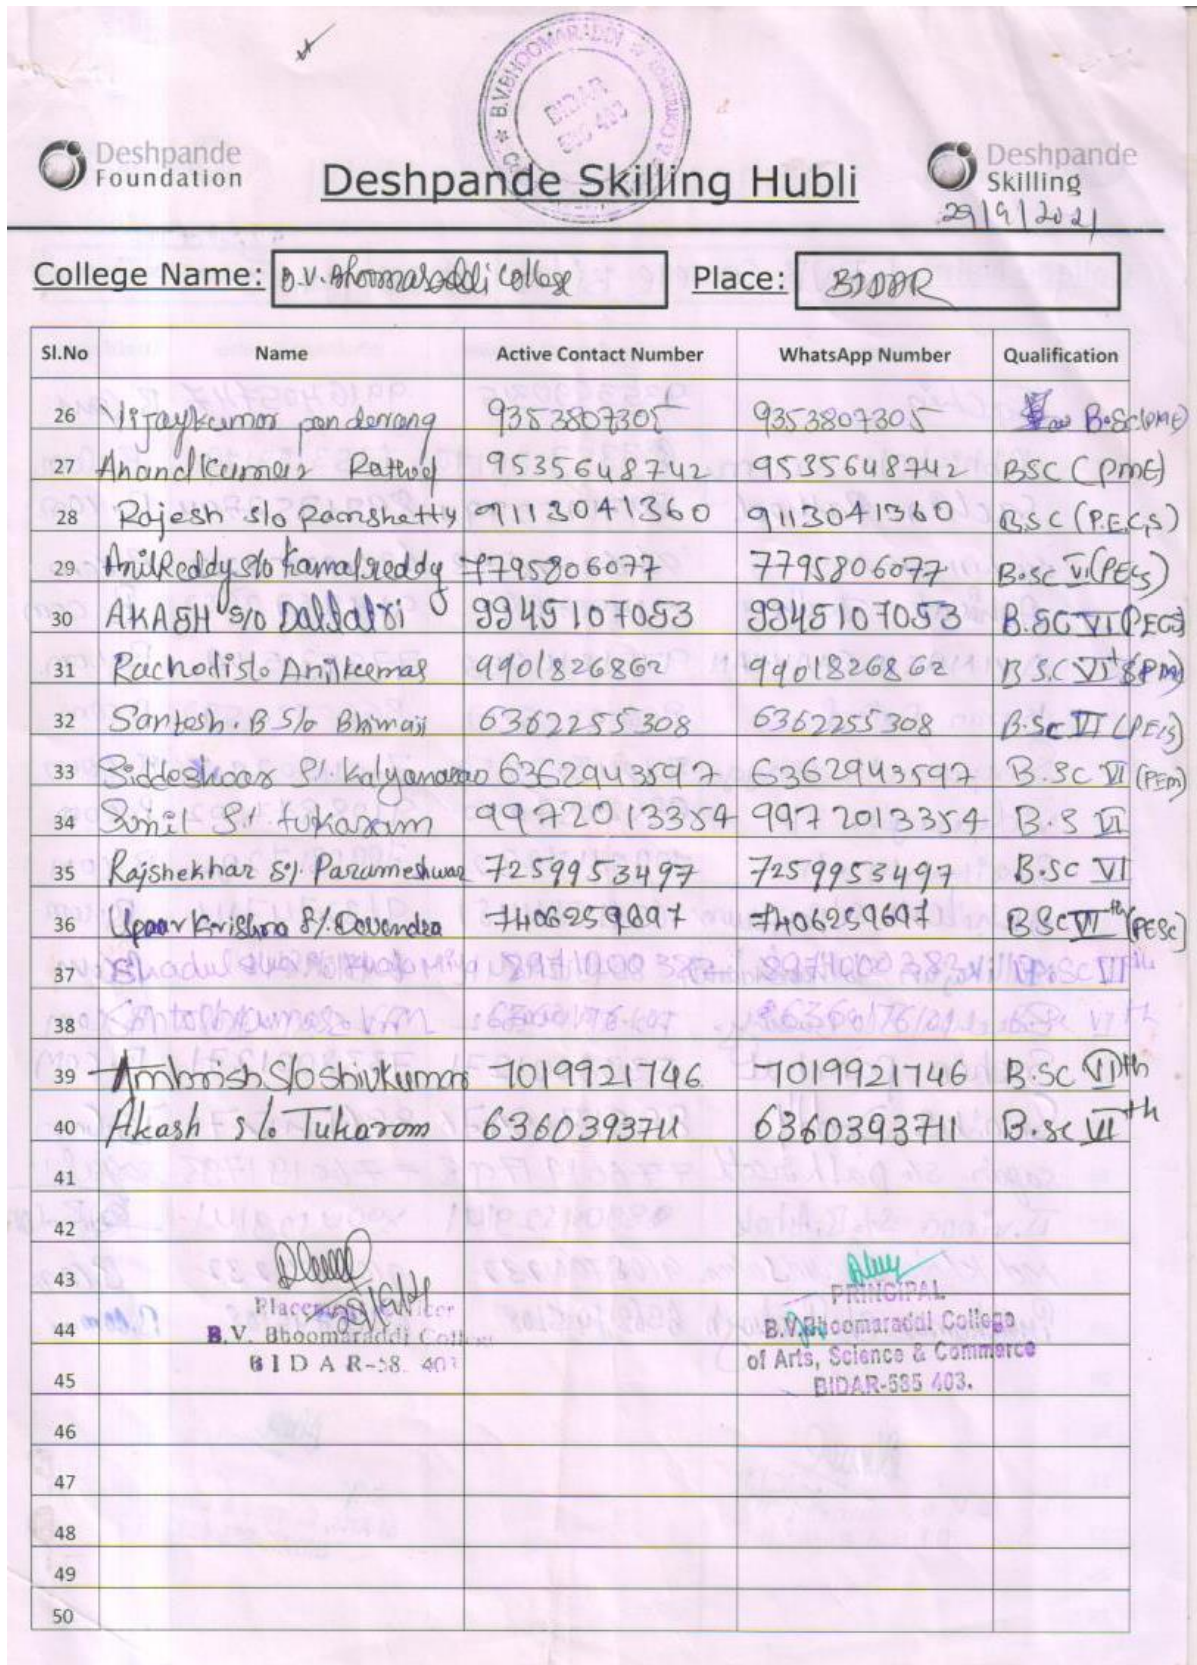 B.V.BHOOMARADDI
BIDAR
585 403
Deshpande
Foundation
Deshpande Skilling Hubli
Deshpande
Skilling
29/9/2021
College Name: B.V. Bhoomaraddi College Place: BIDAR
Sl.No Name Active Contact Number WhatsApp Number Qualification
26 Vijaykumar pandurang 9353807305 9353807305 B.Sc(PME)
27 Anandkumar Rathod 9535648742 9535648742 BSC (PME)
28 Rajesh s/o Ramshetty 9113041360 9113041360 B.S C (P.E.C.S)
29 AnilReddy s/o Kamalreddy 7795806077 7795806077 B.sc VI (PECs)
30 AKASH S/O 9945107053 9945107053 B.SC VI (PECS)
31 Rachodi s/o Anilkumar 9901826862 9901826862 B.S.C VI
32 Santosh.B S/o Bhimaji 6362255308 6362255308 B.Sc VI (PECS)
33 Siddeshwar S/. Kalyanarao 6362943597 6362943597 B.SC VI (PEM)
34 Sunil S/ tukaram 9972013354 9972013354 B.S VI
35 Rajshekhar S/. Parameshwar 7259953497 7259953497 B.SC VI
36 Upaar Krishna S/. Devendra 7406259697 7406259697 B.SC VI th (PESC)
37
38
39 Ambrish S/o Shivkumar 7019921746 7019921746 B.SC VI th
40 Akash s/o Tukarom 6360393711 6360393711 B.sc VI th
41
42
43
44
45
46
47
48
49
50
Placement Officer
B.V. Bhoomaraddi College
BIDAR-58 403
PRINCIPAL
B.V.Bhoomaraddi College
of Arts, Science & Commerce
BIDAR-585 403.